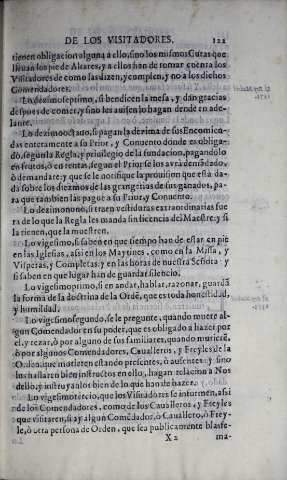 DE LOS VISITADORES. 122
tienen obligacion alguna a ello, sino los mismos Curas que
lleuan los pie de Altares, y a ellos han de tomar cuenta los
Visitadores de como las dizen, y complen, y no a los dichos
Comendadores.
Lo dezimoseptimo, si bendicen la mesa, y dan gracias
despues de comer, y sino les auisen lo hagan dende en ade-
lante.
Lo dezimooctauo, si pagan la dezima de sus Encomien-
das enteramente a su Prior, y Conuento donde es obliga-
do, segun la Regla, y priuilegio de la fundacion, pagandolo
en frutos, ò en rentas, segun el Prior se los avrà demãdado,
ò demandare; y que se le notifique la prouision que està da-
da sobre los diezmos de las grangerias de sus ganados, pa-
ra que tambien las pague a su Prior, y Conuento.
Lo dezimonono, si traen vestiduras extraordinarias fue
ra de lo que la Regla les manda sin licencia del Maestre: y si
la tienen, que la muestren.
Lo vigesimo, si saben en que tiempo han de estar en pie
en las Iglesias, assi en los Maytines, como en la Missa, y
Visperas, y Completas, y en las horas de nuestra Señora: y
si saben en que lugar han de guardar silencio.
Lo vigesimoprimo, si en andar, hablar, razonar, guardã
la forma de la doctrina de la Ordẽ, que es toda honestidad,
y humildad.
Lo vigesimosegundo, se le pregunte, quando muere al-
gun Comendador en su poder, que es obligado a hazer por
el, y rezar, ò por alguno de sus familiares, quando murierẽ,
ò por algunos Comendadores, Caualleros, y Freyles de la
Orden, que murieren estando presentes, ò ausentes: y sino
los hallaren bien instructos en ello, hagan relacion a Nos
dello, è instruyanlos bien de lo que han de hazer.
Lo vigesimotercio, que los Visitadores se informen, assi
de los Comendadores, como de los Caualleros, y Freyles
que visitaren, si ay algun Comẽdador, ò Cauallero, ò Frey-
le, ò otra persona de Orden, que sea publicamente blasfe-
X 2 ma-